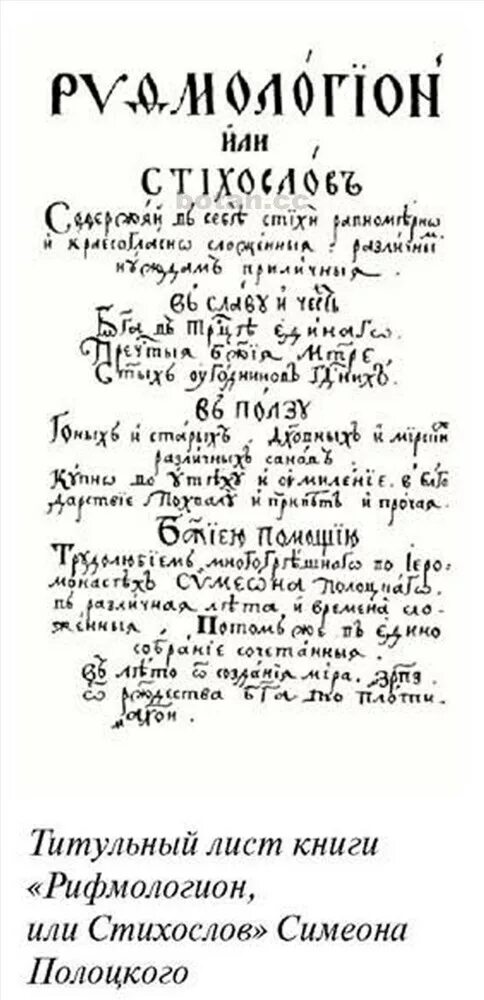 РѴѲМОЛО́ГЇОН
ИЛИ
СТІХОСЛО́ВЪ
botan.cc
Содержяй въ себѣ стїхи равномѣрнѡ
и краесогласнѡ сложенныя различным
нуждамъ приличныя.
ВЪ СЛАВУ И ЧЕСТЬ
Бг҃а въ Трⷪ҇цѣ единагѡ.
Преч҇тыя Бж҃їя Мт҃ре.
Ст҃ыхъ оугодниковъ Гд҇нихъ.
ВЪ ПОЛЗУ
Юныхъ и старыхъ. Дх҃овныхъ и мїрски
различныхъ санѡвъ.
Купнѡ ко утѣху и оумиленїе. в благо
дарствїе Похвалу и привѣтъ и прочая.
БЖ҃ІЕЮ ПОМОЩІЮ
Трудолюбїемъ многогрѣшнагѡ во Iеро:
монасѣхъ СѴМЕѠНА Полоцкагѡ.
въ различная лѣта, и времена сло:
женныя. Потомъ же въ едино
собранїе сочетанныя.
Въ лѣто ѿ созданїя мїра. ЗРПЗ
ѿ рождества Бг҃а по плоти
҂АХОИ.
Титульный лист книги
«Рифмологион,
или Стихослов» Симеона
Полоцкого